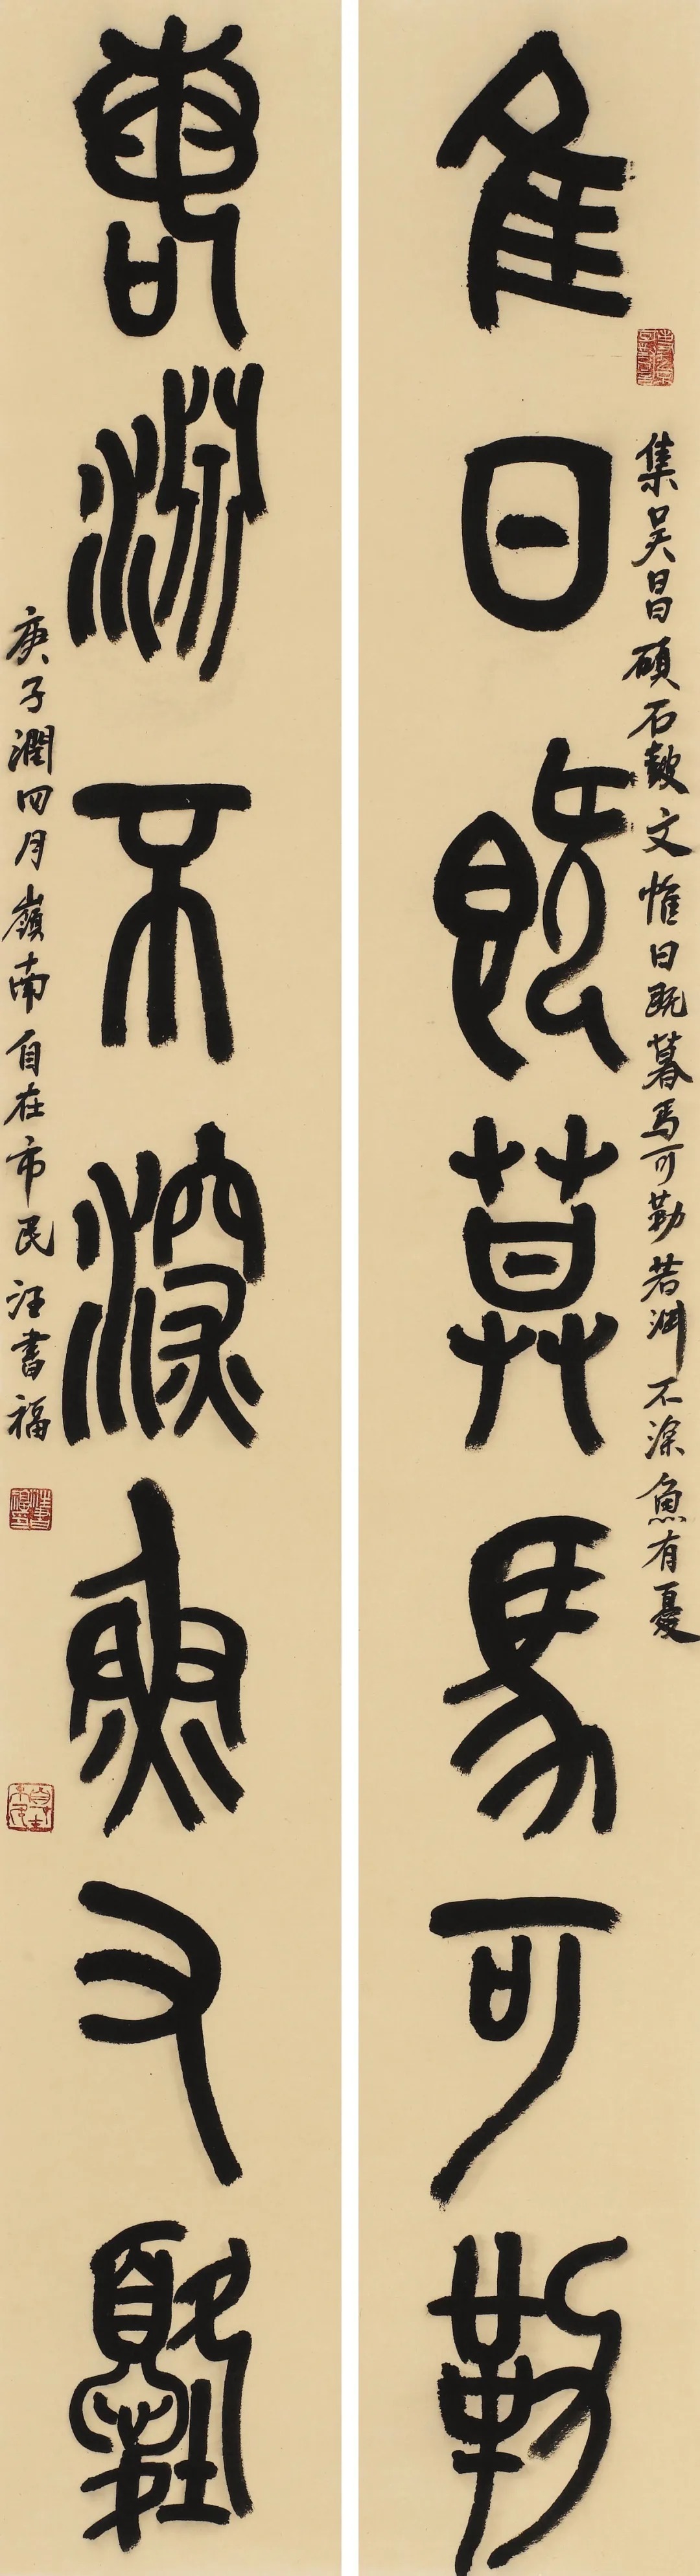 集吴昌碩石鼓文惟日既暮馬可勒若渊不深魚有憂
隹日既莫馬可勒
若淵不深魚又憂
庚子潤四月嶺南自在市民汪書福